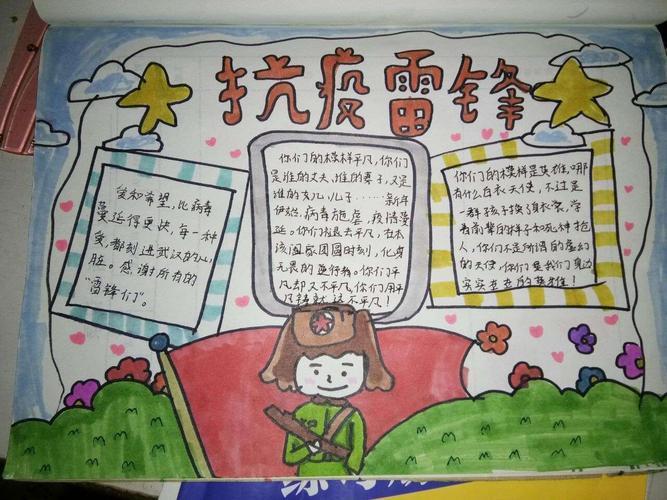 抗疫雷锋
爱和希望，比病毒
蔓延得更快，每一种
爱，都刻进武汉的心
脏。感谢所有的
“雷锋们”。
你们的模样平凡，你们
是谁的丈夫、谁的妻子，又是
谁的女儿、儿子……新年
伊始，病毒施虐，疫情蔓
延。你们挺退去平凡，在本
该阖家团圆时刻，化身
无畏的逆行者。你们平
凡却又不平凡，你们用平
凡铸就 不平凡！
你们的模样是英雄，哪
有什么白衣天使，不过是
一群孩子换了身衣裳，学
着前辈的样子和死神抢
人，你们不是所谓的虚幻
的天使，你们是我们身边
实实在在的英雄！